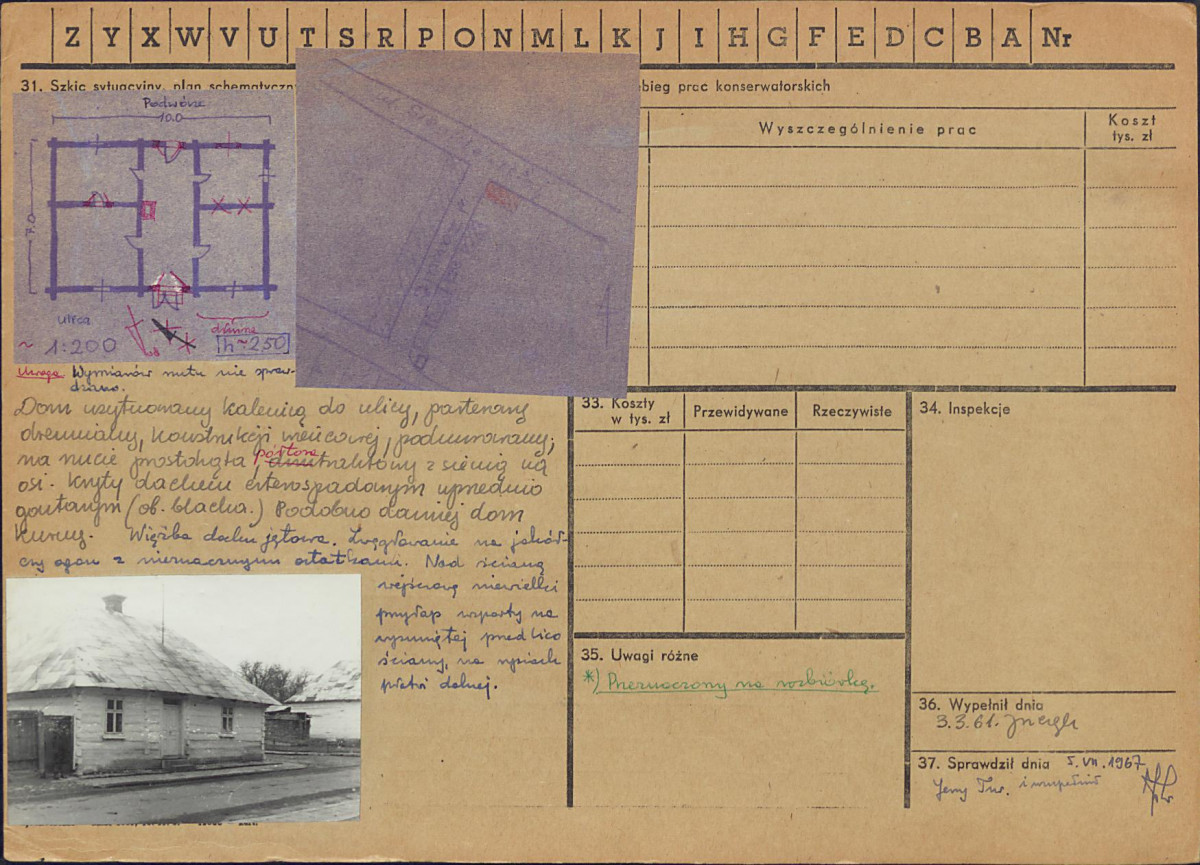 Z Y X W V U T S R P O N M L K J I H G F E D C B A Nr
31. Szkic sytuacyjny, plan schematyczny
bieg prac konserwatorskich
Podwórze
10.0
7.0
ulica
~ 1:200
dawne
h~250
ul.
Wyszczególnienie prac
Koszt
tys. zł
Uwaga Wymiarów rzutu nie spraw-
dzono.
Dom usytuowany kalenicą do ulicy, parterowy
drewniany, konstrukcji wieńcowej, podmurowany;
na rzucie prostokąta, półtora dwutraktowy z sienią na
osi. Kryty dachem czterospadowym uprzednio
gontowym (ob. blacha.) Podobno dawniej dom
kurny. Więźba dachu jętowa. Węgłowanie na jaskół-
czy ogon z nieznacznymi ostatkami. Nad ścianą
wejściową niewielki
przydap wsparty na
wysuniętej przed lico
ściany, na rysiach
płatwi dolnej.
33. Koszty
w tys. zł
Przewidywane
Rzeczywiste
34. Inspekcje
35. Uwagi różne
*) Przeznaczony na rozbiórkę.
36. Wypełnił dnia
3.3.61.
37. Sprawdził dnia 5.VII.1967
Jerzy Tur. i uzupełnił